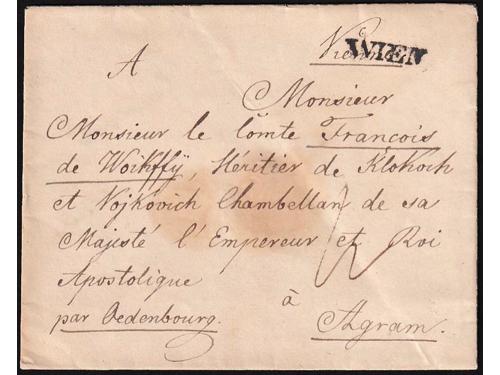 Vienne WIEN
A
Monsieur
Monsieur le Comte François
de Woikffÿ, Héritier de Klokoch
et Vojkovich Chambellan de sa
Majesté l'Empereur et Roi
Apostolique
à
par Oedenbourg. Agram.